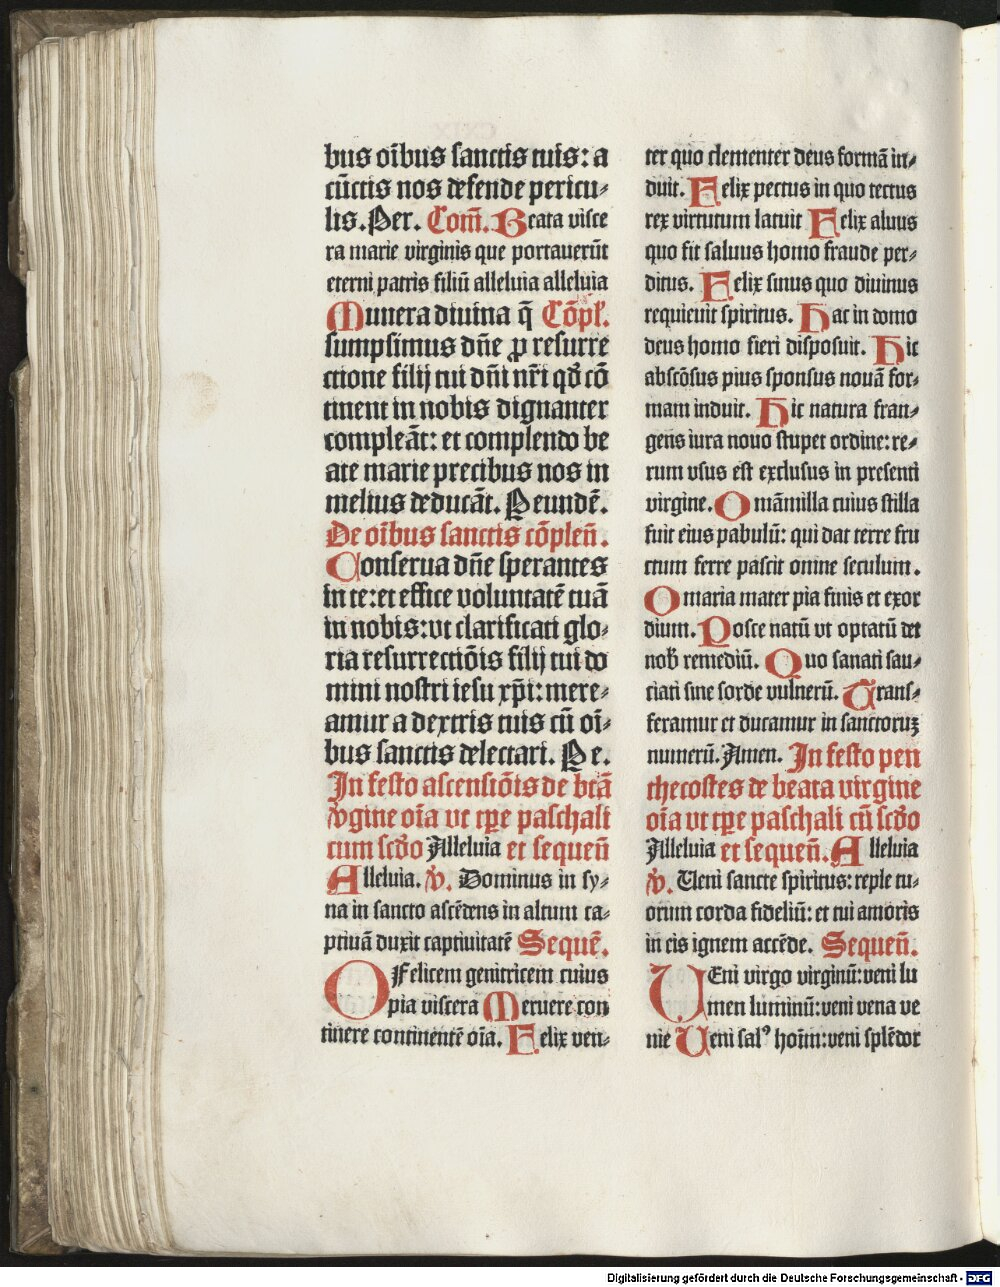 bus oi̅bus sanctis tuis: a
cu̅ctis nos defende pericu-
lis. Per. Com̅. Beata visce
ra marie virginis que portaueru̅t
eterni patris filiu̅ alleluia alleluia
Munera diuina q̅ Co̅pl̅.
sumpsimus dn̅e ꝓ resurre
ctione filij tui dn̅i nr̅i qd̅ co̅
tinent in nobis dignanter
complea̅t: et complendo be
ate marie precibus nos in
melius deduca̅t. Peunde̅.
De oi̅bus sanctis co̅plen̅.
Conserua dn̅e sperantes
in te: et effice voluntate̅ tua̅
in nobis: vt clarificati glo-
ria resurrectio̅is filij tui do
mini nostri iesu xp̅i: mere-
amur a dextris tuis cu̅ oi̅-
bus sanctis delectari. Pe.
In festo ascensio̅is de bta̅
v̅gine oi̅a vt tp̅e paschali
cum scd̅o Alleluia et sequen̅
Alleluia. v̅. Dominus in sy-
na in sancto asce̅dens in altum ca-
ptiua̅ duxit captiuitate̅ Seque̅.
O Felicem genitricem cuius
pia viscera Meruere con
tinere continente̅ oi̅a. Felix ven-
ter quo clementer deus forma̅ in-
duit. Felix pectus in quo tectus
rex virtutum latuit Felix aluus
quo fit saluus homo fraude per-
ditus. Felix sinus quo diuinus
requieuit spiritus. Hac in domo
deus homo fieri disposuit. Hic
absco̅sus pius sponsus noua̅ for-
mam induit. Hic natura fran-
gens iura nouo stupet ordine: re-
rum vsus est exclusus in presenti
virgine. O ma̅milla cuius stilla
fuit eius pabulu̅: qui dat terre fru
ctum ferre pascit omne seculum.
O maria mater pia finis et exor
dium. Posce natu̅ vt optatu̅ det
nob̅ remediu̅. Quo sanati sau-
ciati sine sorde vulneru̅. Trans-
feramur et ducamur in sanctoruꝫ
numeru̅. Amen. In festo pen
thecostes de beata virgine
oi̅a vt tp̅e paschali cu̅ scd̅o
Alleluia et sequen̅. Alleluia
v̅. Ueni sancte spiritus: reple tu-
orum corda fideliu̅: et tui amoris
in eis ignem acce̅de. Sequen̅.
VEni virgo virginu̅: veni lu
men luminu̅: veni vena ve
nie Ueni salꝰ hoi̅m: veni sple̅dor
Digitalisierung gefördert durch die Deutsche Forschungsgemeinschaft - DFG